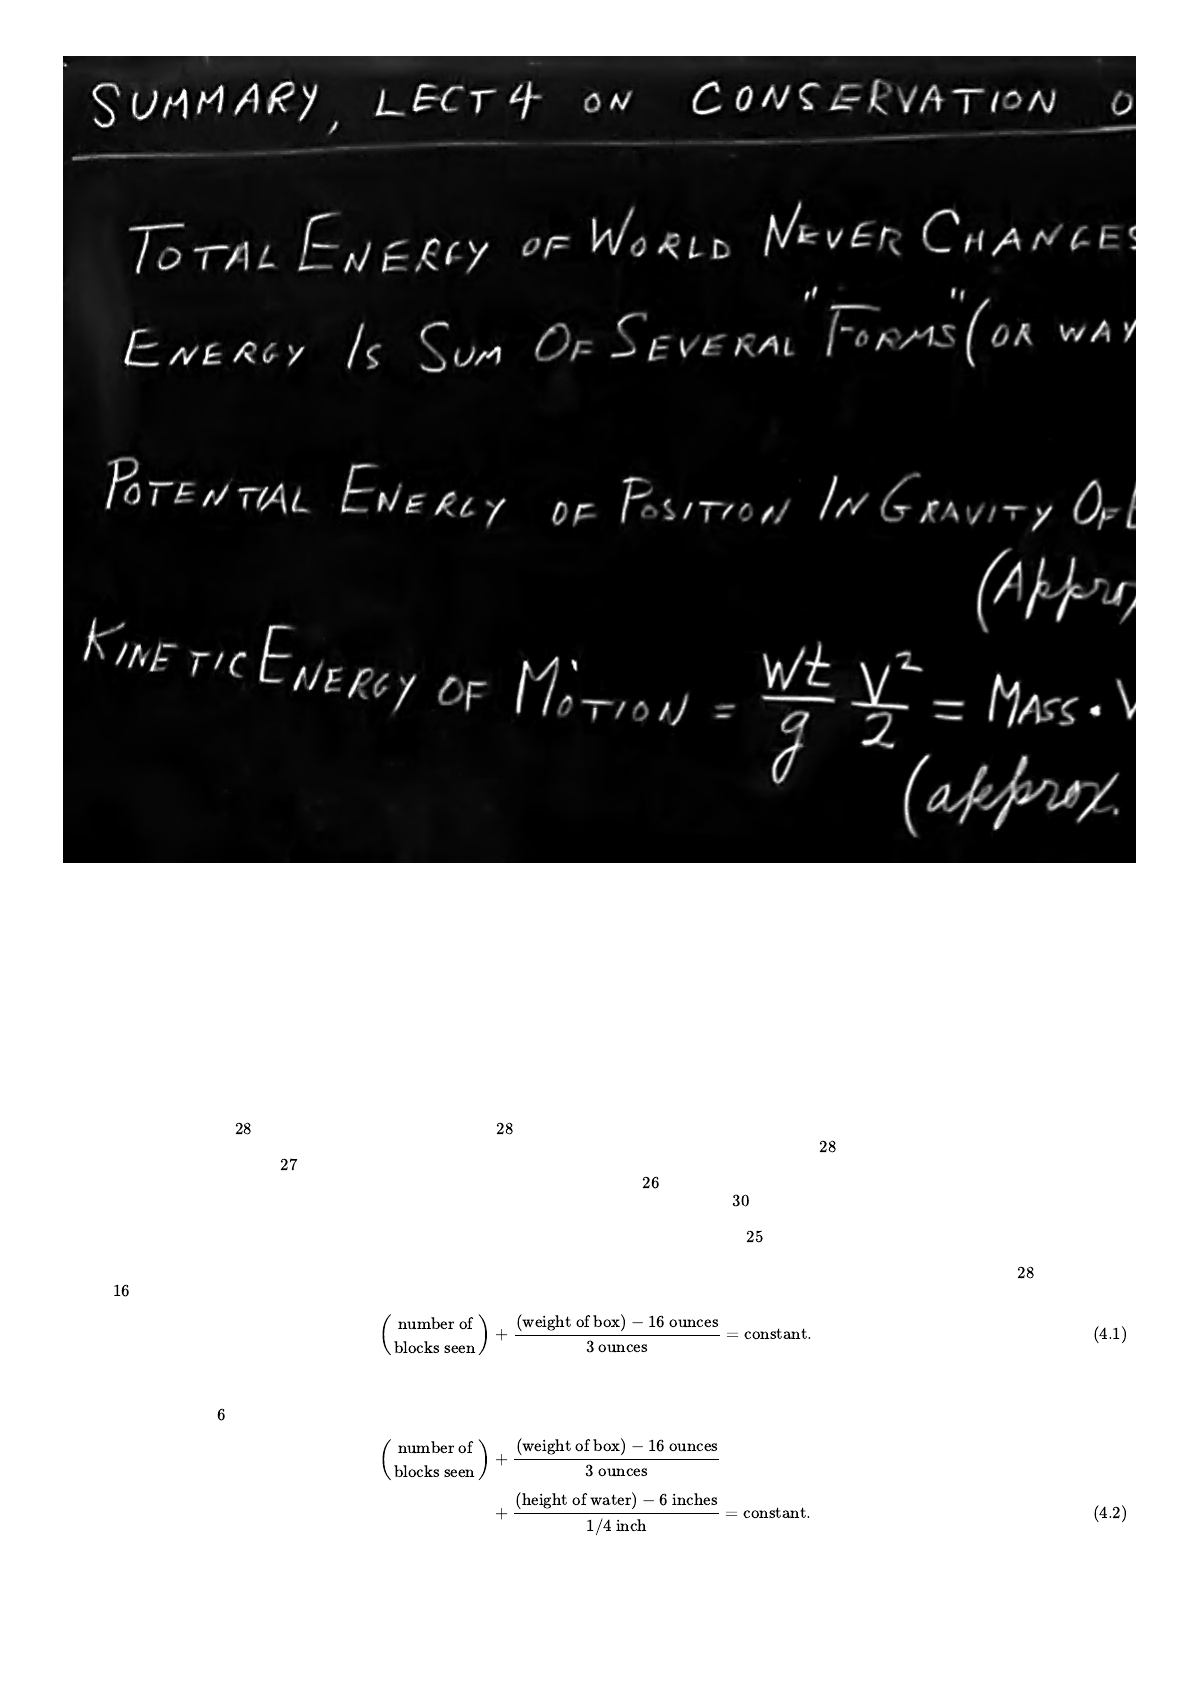 SUMMARY, LECT 4 ON CONSERVATION O
TOTAL ENERGY OF WORLD NEVER CHANGES
ENERGY IS SUM OF SEVERAL "FORMS" (OR WAY
POTENTIAL ENERGY OF POSITION IN GRAVITY OF E
(Approx
KINETIC ENERGY OF MOTION = Wt/g V²/2 = MASS · V
(approx.
28 28
28
27
26
30
25
28
16
(number of blocks seen) + ((weight of box) − 16 ounces)/(3 ounces) = constant. (4.1)
6
(number of blocks seen) + ((weight of box) − 16 ounces)/(3 ounces)
+ ((height of water) − 6 inches)/(1/4 inch) = constant. (4.2)